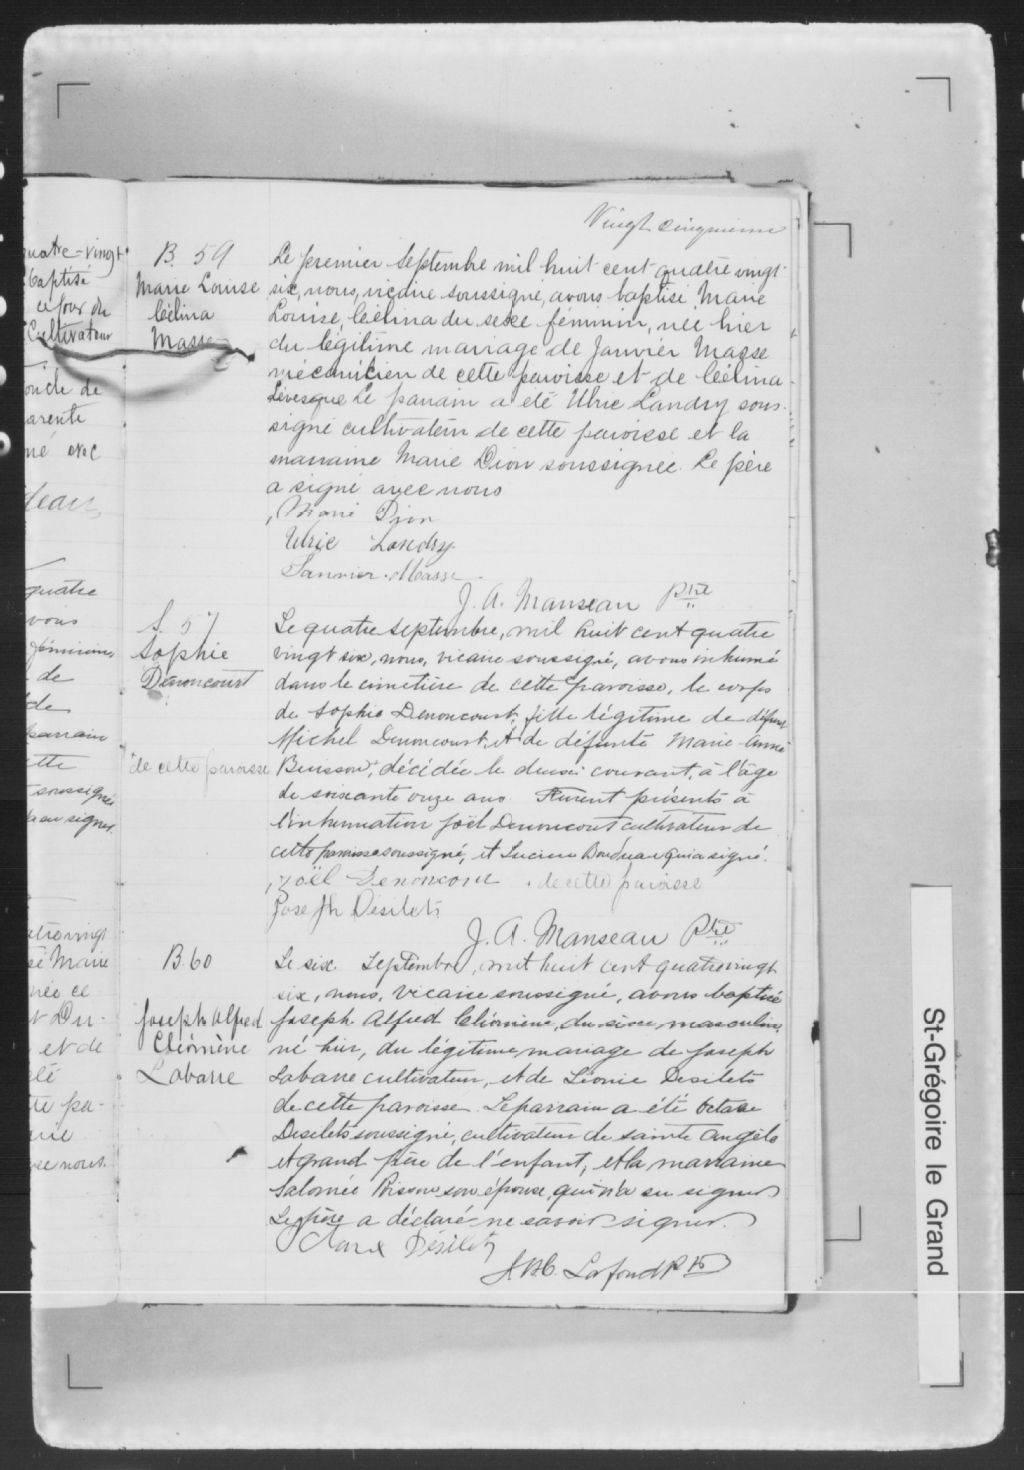 Vingt cinquieme
uatre-vingt
baptisé
ce jour du
Cultivateur
oncle de
arente
né avec
quatre
vous
féminin,
de
de
parrain
ette
soussigné
su signer.
atrevingt
sé Marie
née ce
et Du-
et de
été
te pa-
vec nous.
B. 59
Marie Louise
Célina
Masse
Le premier Septembre mil huit cent quatre vingt
six, nous, vicaire soussigné, avons baptisé Marie
Louise, Célina du sexe féminin, née hier
du légitime mariage de Janvier Masse
mécanicien de cette paroisse et de Célina
Lévesque Le parrain a été Ulric Landry sous-
signé cultivateur de cette paroisse et la
marraine Marie Dion soussignée. Le père
a signé avec nous
Marie Dion
Ulric Landry
Janvier Masse
J. A. Manseau Ptre
S. 57
Sophie
Denoncourt
de cette paroisse
Le quatre septembre, mil huit cent quatre
vingt six, nous, vicaire soussigné, avons inhumé
dans le cimetière de cette paroisse, le corps
de Sophie Denoncourt, fille légitime de défunt
Michel Denoncourt, et de défunte Marie-Anne
Buisson, décédée le deux courant, à l'âge
de soixante onze ans. Furent présents à
l'inhumation Joël Denoncourt cultivateur de
cette paroisse soussigné, et Lucien qui a signé.
Joël Denoncour de cette paroisse
Joseph Désilets
J. A. Manseau Ptre
B. 60
Joseph Alfred
Cléomène
Labarre
Le six Septembre, mil huit cent quatrevingt
six, nous, vicaire soussigné, avons baptisé
Joseph Alfred Cléomène, du sexe masculin,
né hier, du légitime mariage de Joseph
Labarre cultivateur, et de Léonie Desilets
de cette paroisse. Le parrain a été Octave
Desilets soussigné, cultivateur de Sainte Angèle
et grand père de l'enfant, et la marraine
Salomée Poisson son épouse, qui n'a su signer
Le père a déclaré ne savoir signer.
Désilets
Lafond Ptr
St-Grégoire le Grand